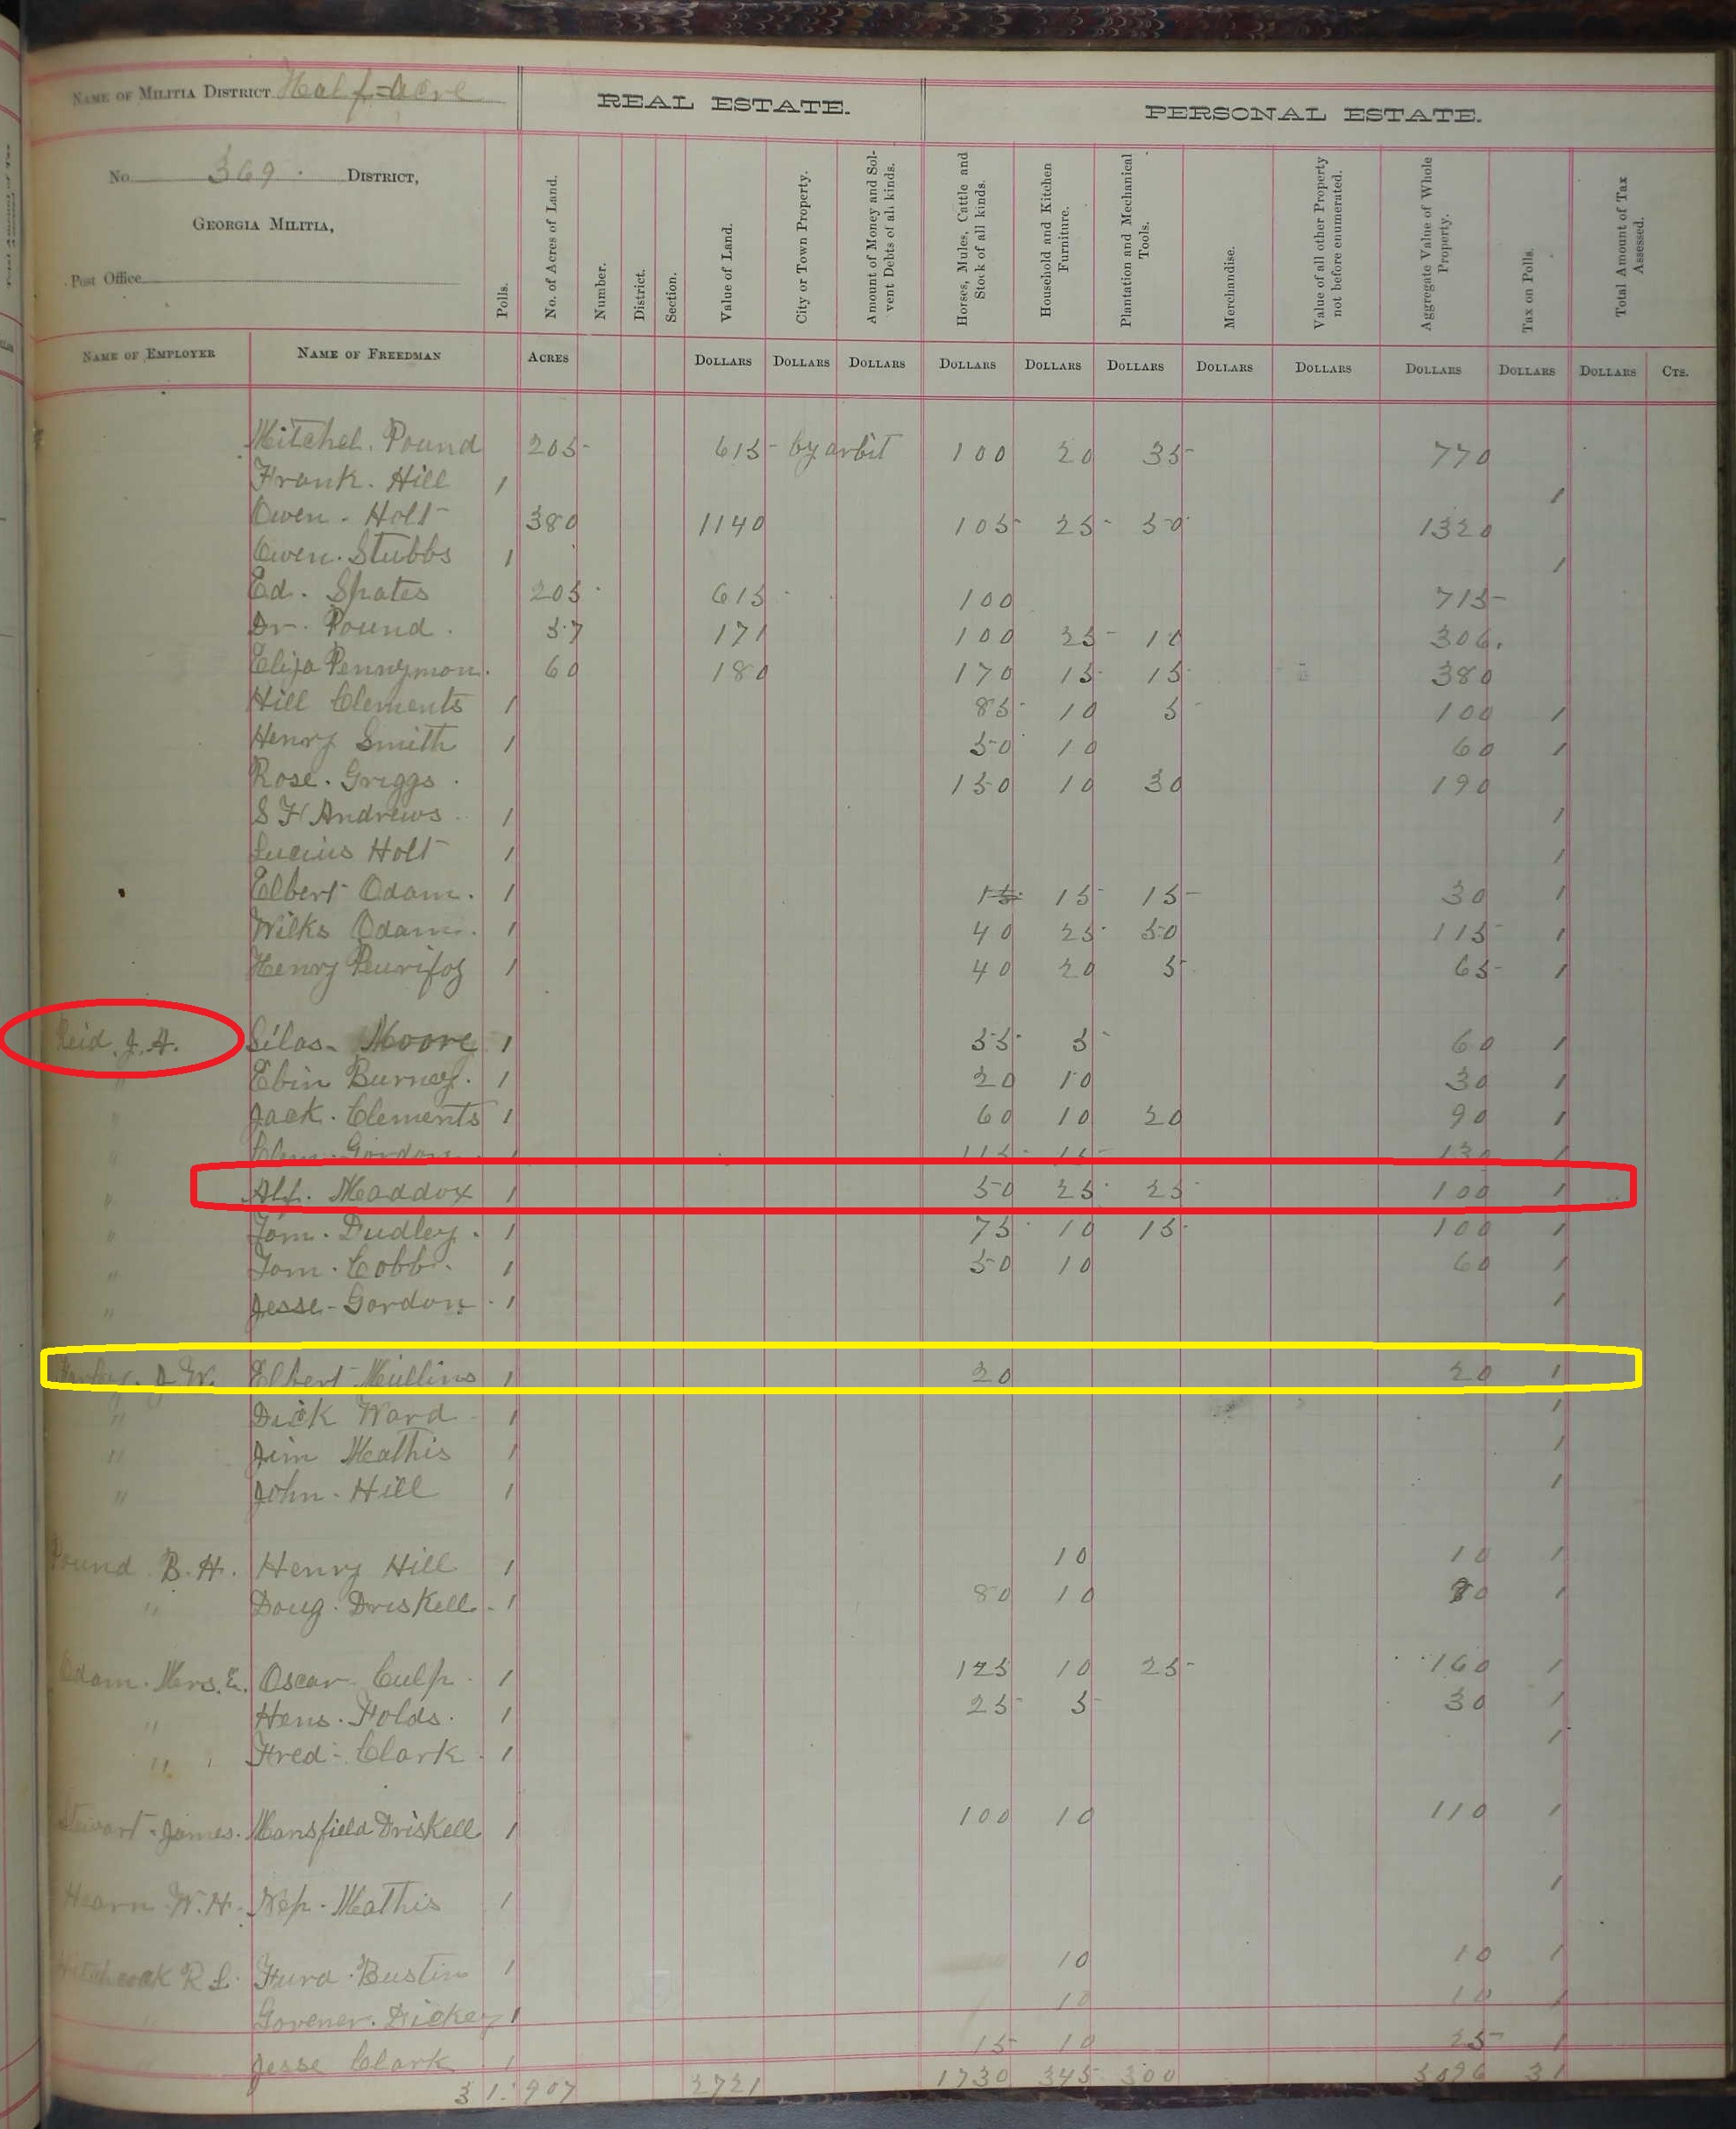 NAME OF MILITIA DISTRICT Half-Acre
REAL ESTATE.
PERSONAL ESTATE.
No 369. DISTRICT,
GEORGIA MILITIA,
Post Office
Polls.
No. of Acres of Land.
Number.
District.
Section.
Value of Land.
City or Town Property.
Amount of Money and Sol-
vent Debts of all kinds.
Horses, Mules, Cattle and
Stock of all kinds.
Household and Kitchen
Furniture.
Plantation and Mechanical
Tools.
Merchandise.
Value of all other Property
not before enumerated.
Aggregate Value of Whole
Property.
Tax on Polls.
Total Amount of Tax
Assessed.
NAME OF EMPLOYER NAME OF FREEDMAN ACRES DOLLARS DOLLARS DOLLARS DOLLARS DOLLARS DOLLARS DOLLARS DOLLARS DOLLARS DOLLARS DOLLARS CTS.
Mitchel. Pound 205 615 by arbit 100 20 35 770
Frank. Hill 1 1
Owen. Holt 380 1140 105 25 50 1320
Owen. Stubbs 1 1
Ed. Spates 205 615 100 715
Dr. Pound. 57 171 100 25 10 306.
Eliza Pennymon. 60 180 170 15 15 380
Hill Clements 1 85 10 5 100 1
Henry Smith 1 50 10 60 1
Rose. Griggs. 150 10 30 190
S F Andrews. 1 1
Lucius Holt 1 1
Elbert Odam. 1 15 15 15 30 1
Wilks Odam. 1 40 25 50 115 1
Henry Peurifoy 1 40 20 5 65 1
Reid J. A. Silas. Moore 1 55 5 60 1
" Ebin Burney. 1 20 10 30 1
" Jack. Clements 1 60 10 20 90 1
" Clem. Gordon. 1 115 15 130 1
" Alf. Maddox 1 50 25 25 100 1
" Tom. Dudley. 1 75 10 15 100 1
" Tom. Cobb. 1 50 10 60 1
" Jesse-Gordon. 1 1
D W. Elbert Mullins 1 20 20 1
" Dick Ward 1 1
" Jim Mathis 1 1
" John-Hill 1 1
Pound B. H. Henry Hill 1 10 10 1
" Doug. Driskell. 1 80 10 80 1
Odam. Mrs. E. Oscar Culp. 1 125 10 25 160 1
" Hens. Folds. 1 25 5 30 1
" Fred-Clark. 1 1
Stewart-James. Mansfield Driskell 1 100 10 110 1
Hearn W. H. Nep. Mathis 1 1
Hitchcock R L. Bustin 1 10 10 1
" Govener. Dickey 1 10 10 1
" Jesse Clark 1 15 10 25 1
31. 907 2721 1730 345 300 31